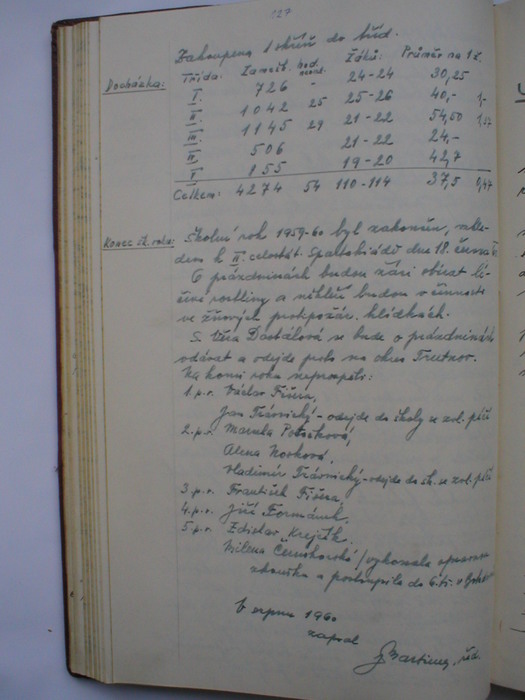 127
Zakoupena 1 skříň do tříd.
Docházka: Třída: Zamešk. hod. neoml. Žáků: Průměr na 1 ž.
I. 726 - 24-24 30,25
II. 1042 25 25-26 40,- 1,-
III. 1145 29 21-22 54,50 1,37
IV. 506 21-22 24,-
V. 855 19-20 42,7
Celkem: 4274 54 110-114 37,5 0,47
Konec šk. roku: Školní rok 1959-60 byl zakončen, vzhle-
dem k II. celostát. Spartakiádě dne 18. června
O prázdninách budou žáci sbírat lé-
čivé rostliny a někteří budou v činnosti
ve žňových protipožár. hlídkách.
S. Věra Dostálová se bude o prázdninách
vdávat a odejde proto na okres Trutnov.
Na konci roku neprospěli:
1.p.r. Václav Fišera,
Jan Trávnický - odejde do školy se zvl. péčí
2.p.r. Marula
Alena Novková,
Vladimír Trávnický - odejde do šk. se zvl. péčí
3.p.r. František Fišera,
4.p.r. Jiří Formánek,
5.p.r. Zdislav Krejčík
Milena /vykonala opravnou
zkoušku a postoupila do 6. tř. v
V srpnu 1960
zapsal
řed.